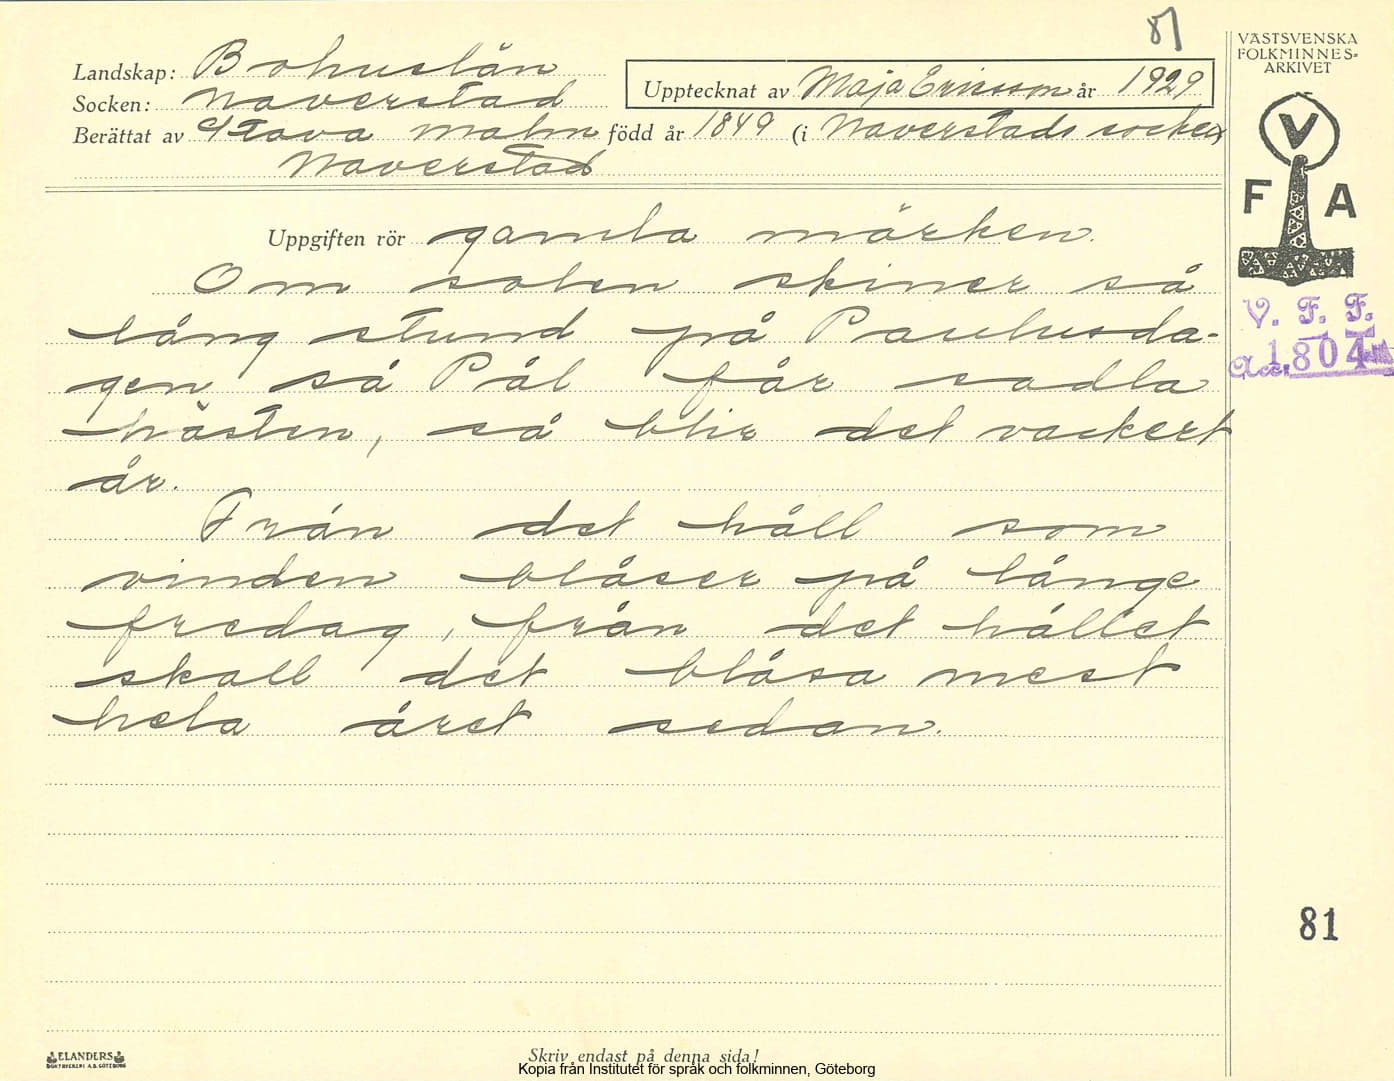 81
VÄSTSVENSKA
FOLKMINNES-
ARKIVET
Landskap: Bohuslän
Socken: Naverstad
Upptecknat av Maja Ericsson år 1929
Berättat av Stava Malm född år 1849 (i Naverstads socken
Naverstad
V
F A
Uppgiften rör gamla märken.
Om solen skiner så
lång stund på Paulusda-
gen så Pål får sadla
hästen, så blir det vackert
år.
Från det håll som
vinden blåser på långe
fredag, från det hållet
skall det blåsa mest
hela året sedan.
V. F. F.
Acc. 1804
81
ELANDERS
BOKTRYCKERI A.B. GÖTEBORG
Skriv endast på denna sida!
Kopia från Institutet för språk och folkminnen, Göteborg